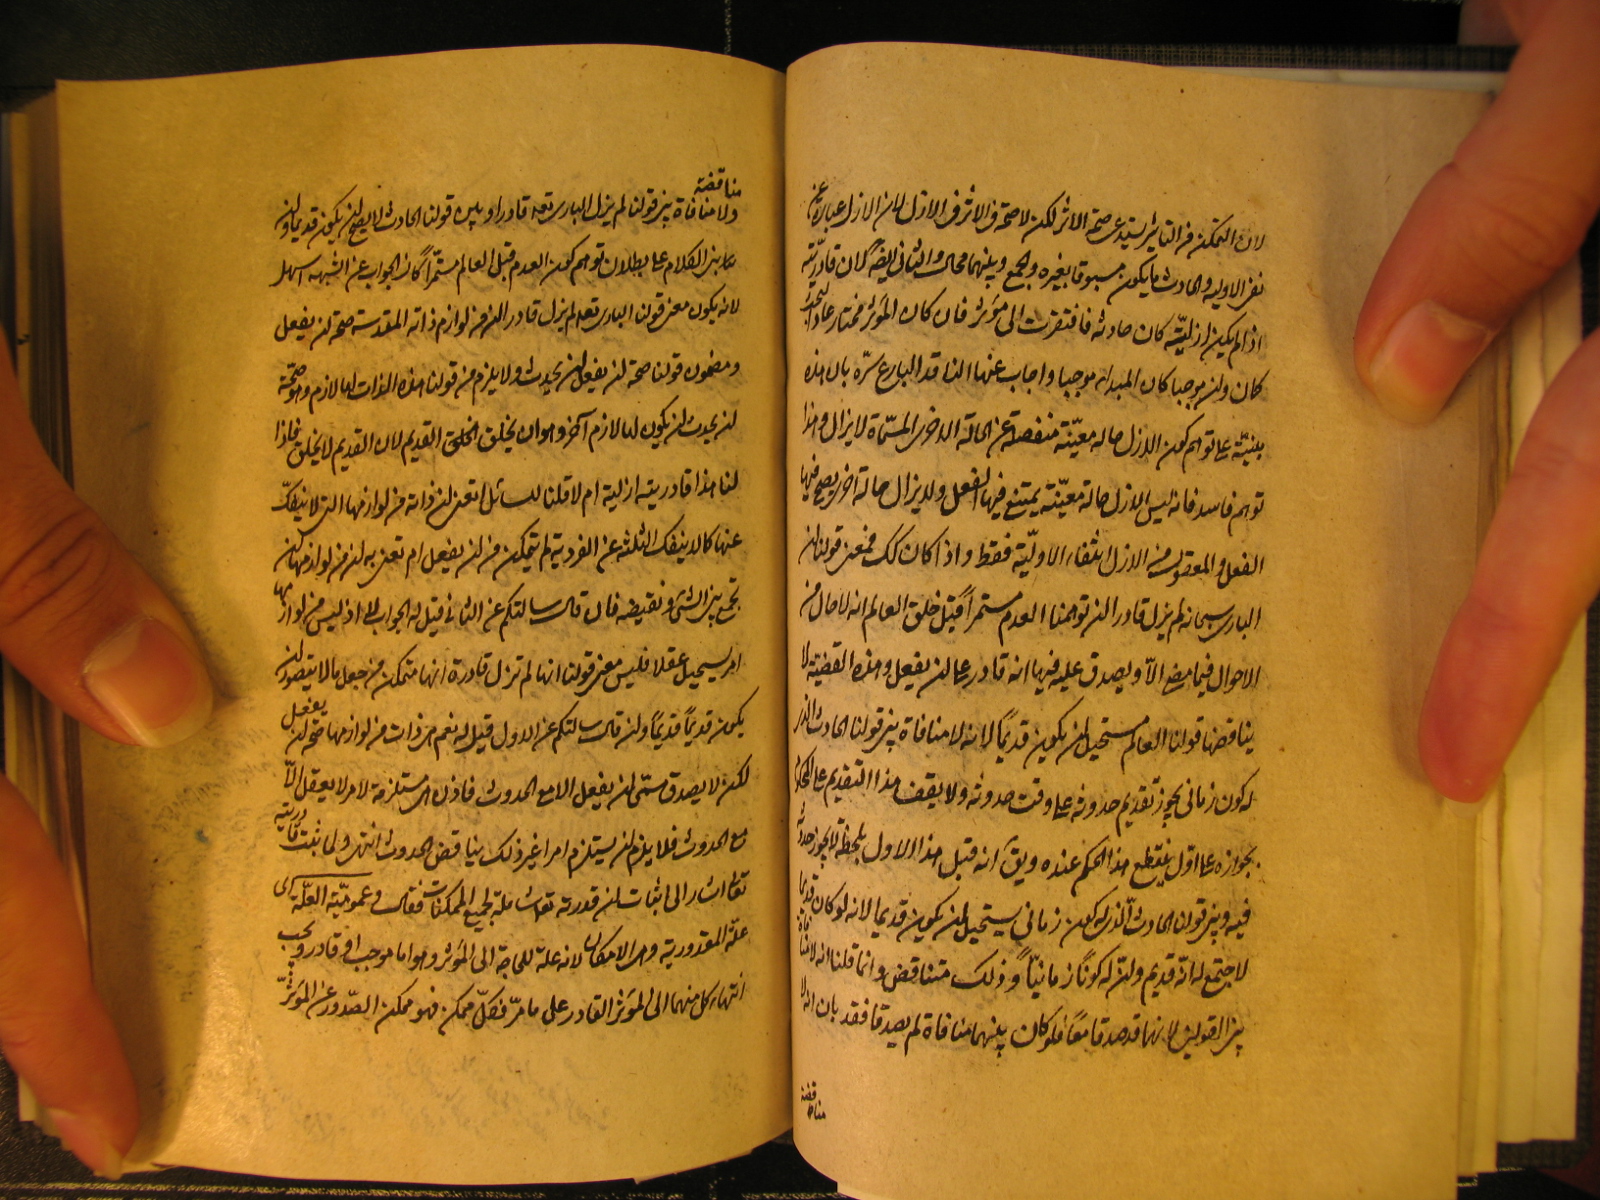 لان التمكن من التاثير يستدعى صحة الاثر لكن لا صحة فى الاثر فى الازل لان الازل عبارة عن
نفى الاولية والحادث ما يكون مسبوقا بغيره والجمع بينهما محال والثانى ايضا لان قادريته
اذا لم يكن ازلية كان حادثه فافتقرت الى مؤثر فان كان المؤثر مختارا عاد البحث
كان وان موجبا كان المبداء موجبا واجاب عنها الناقد البارع سره بان هذه
مبنية على توهم كون الازل حاله معينة منفصلة عن الحالة الاخرى المسماة لا يزال وهذا
توهم فاسد فانه ليس الازل حالة معينة يمتنع فيها الفعل ولا يزال حالة اخرى يصح فيها
الفعل والمعقول من الازل انتفاء الاولية فقط واذا كان كك فمعنى قولنا ان
البارى سبحانه لم يزل قادرا لئن توهمنا العدم مستمرا قبل خلق العالم انه لا حال من
الاحوال فيما مضى الا ويصدق عليه فيها انه قادر على ان يفعل وهذه القضية لا
يناقضها قولنا العالم مستحيل ان يكون قديما لانه لا منافاة بين قولنا الحادث الذى
له كون زمانى يجوز تقديم حدوثه على وقت حدوثه ولا يقف هذا التقديم على الحكم
بجوازه على اول ينقطع هذا الحكم عنده ويق انه قبل هذا الاول بلحظة لا يجوز حدوثه
فيه وبين قولنا الحادث الذى له كون زمانى يستحيل ان يكون قديما لانه لو كان قديما
لاجتمع له انه قديم وان له كونا زمانيا وذلك متناقض وانما قلنا انه لا منافاة
بين القولين لانهما قد صدقا معا فلو كان بينهما منافاة لم يصدقا فقد بان انه لا
مناقضة
مناقضة
ولا منافاة بين قولنا لم يزل البارى تعه قادرا وبين قولنا الحادث لا يصح ان يكون قديما ولن
بنى الكلام على بطلان توهم كون العدم قبل العالم مستمرا كان الجواب عن الشبهة اسهل
لانه يكون معنى قولنا البارى تعه لم يزل قادرا ان من لوازم ذاته المقدسة صحة ان يفعل
ومضمون قولنا صحة ان يفعل ان يحدث ولا يلزم من قولنا هذه الذات لها لازم وهو صحة
ان يحدث ان يكون لها لازم آخر وهو ان يخلق الخلق القديم لان القديم لا يخلق فاذا
لنا هذا قادريته ازلية ام لا قلنا للسائل اتعنى ان ذاته من لوازمها التى لا ينفك
عنها كما لا ينفك الثلثه عن الفردية لم تتمكن من ان يفعل ام تعنى به ان من لوازمها ان
تجمع بين الشى ونقيضه فان قال سالتكم عن الثانى قيل له الجواب لا اذ ليس من لوازمها
امر يستحيل عقلا فليس معنى قولنا انها لم تزل قادرة انها متمكن من جعل ما لا يتصور ان
يكون قديما قديما وان قال سالتكم عن الاول قيل له نعم هى ذات من لوازمها صحة ان يفعل
لكن لا يصدق مسمى ان يفعل الا مع الحدوث فاذن هى مستلزمة لامر لا يعقل الا
مع الحدوث فلا يلزم ان يستلزم امرا غير ذلك يناقض الحدوث انتهى ولما ثبت قادريته
تعالى اشار الى اثبات ان قدرته تعالى شاملة لجميع الممكنات فقال وعمومية العلة اى
علة المقدورية وهى الامكان لانه علة للحاجة الى المؤثر وهو اما موجب او قادر ويجب
انتهاء كل منهما الى المؤثر القادر على ما مر فكل ممكن فهو ممكن الصدور عن المؤثر